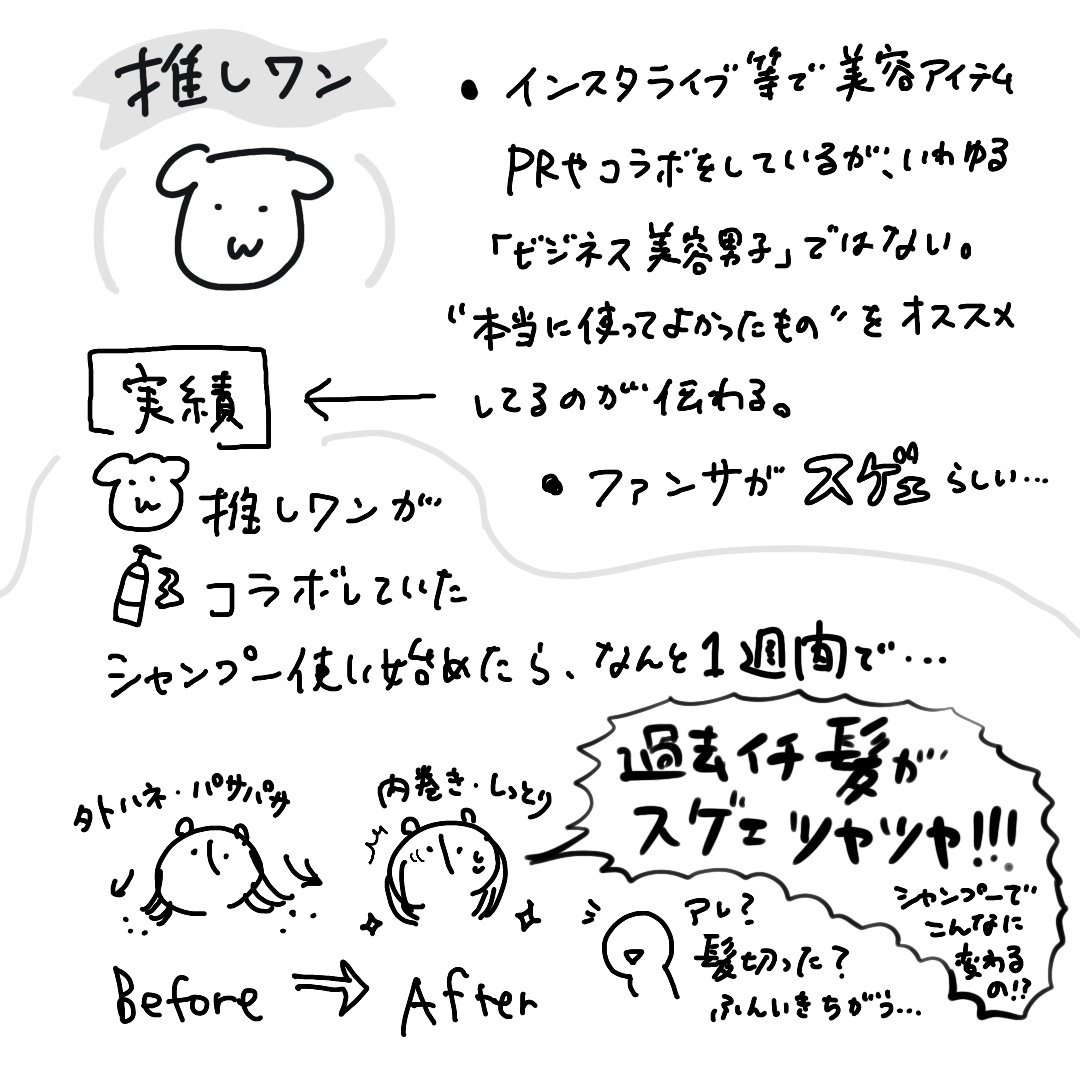 推しワン
• インスタライブ等で美容アイテム
PRやコラボをしているが、いわゆる
「ビジネス美容男子」ではない。
“本当に使ってよかったもの”をオススメ
してるのが伝わる。
• ファンサがスゲェらしい…
実績
推しワンが
コラボしていた
シャンプー使い始めたら、なんと1週間で…
過去イチ髪が
スゲェツヤツヤ!!!
シャンプーで
こんなに
変わる
の!?
外ハネ・パサパサ
内巻き・しっとり
Before ⇒ After
アレ?
髪切った?
ふんいきちがう…